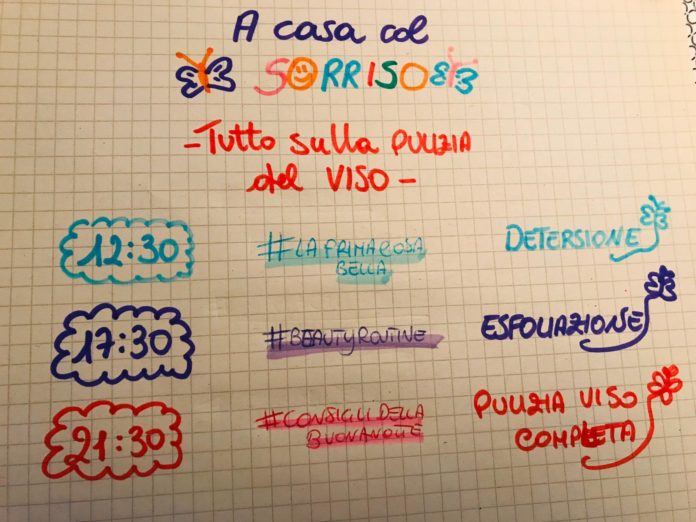 A casa col
SORRISO
- Tutto sulla PULIZIA
del VISO -
12:30 #LA PRIMA COSA BELLA DETERSIONE
17:30 #BEAUTYROUTINE ESFOLIAZIONE
21:30 #CONSIGLI DELLA BUONANOTTE PULIZIA VISO COMPLETA